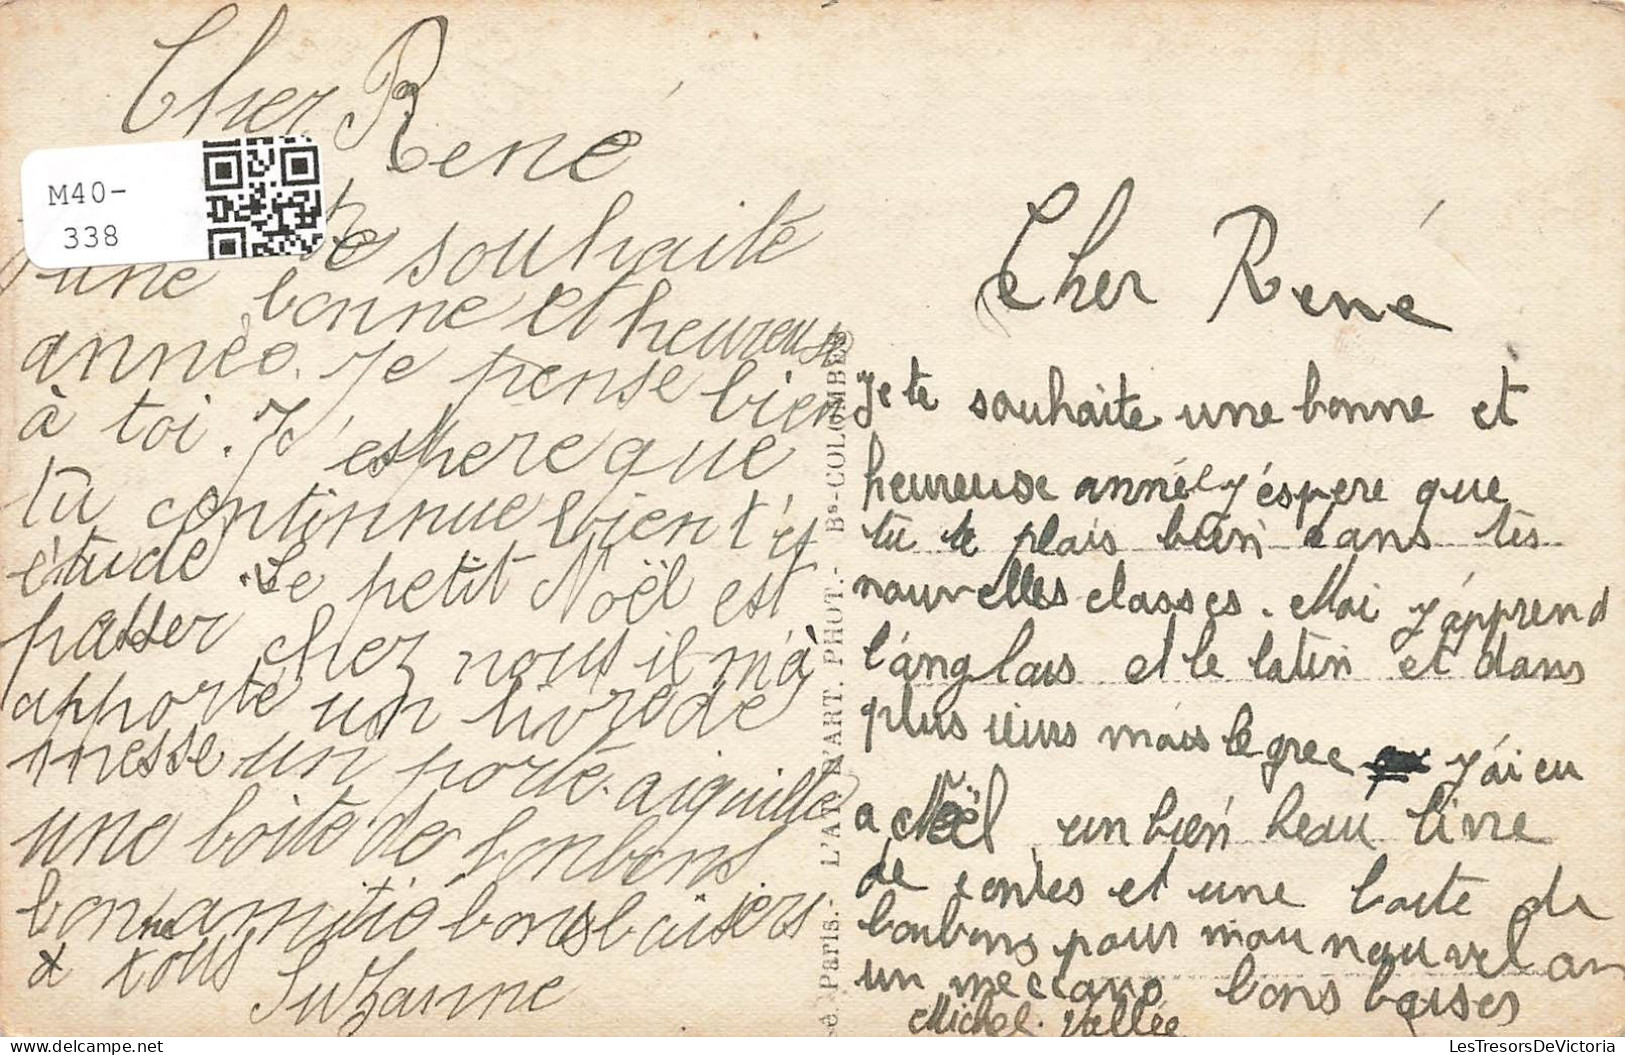 Cher René
M40-
338
te souhaite
une bonne et heureuse
année. Je pense bien
à toi. J'espère que
tu continnue bien t'es
étude. Le petit Noël est
passer chez nous il m'à
apporté un livre de
messe un porte-aiguille
une boite de bonbons
bonne amitié bons baisers
à tous Suzanne
sé Paris. - L'ART. PHOT. - Bs-COLOMBES
Cher René
Je te souhaite une bonne et
heureuse année j'éspere que
tu te plais bien dans tes
nouvelles classes. Moi j'apprend
l'anglais et le latin et dans
plus ieurs mois le grec j'ai eu
a Noël un bien beau livre
de contes et une boite de
bonbons pour mon nouvel an
un meccano bons baises
Michel Vallée
LesTresorsDeVictoria
www.delcampe.net